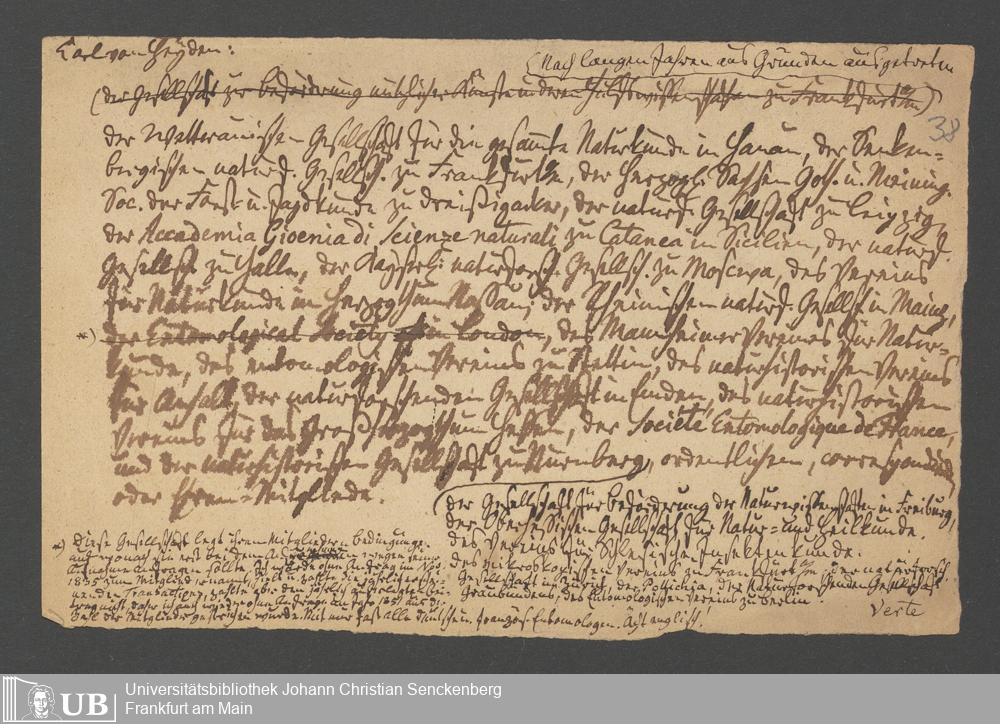 Carl von Heyden:
(Nach langen Jahren aus Gründen ausgetreten
(der Gesellschaft zur Beförderung nützlicher Künste u. deren Hülfswissenschaften zu Frankfurt a/m)
38
der Wetterauischen Gesellschaft für die gesammte Naturkunde in Hanau, der Senken=
bergischen naturf. Gesellsch. zu Frankfurt a/m, der Herzogl. Sachsen Goth. u. Meining.
Soc. der Forst- u. Jagdkunde zu Dreißigacker, der naturf. Gesellschaft zu Leipzig,
der Accademia Gioenia di Scienze naturali zu Catanea in Sicilien, der naturf.
Gesellsch. zu Halle, der Kayserl. naturforsch. Gesellsch. zu Moscwa, des Vereins
für Naturkunde im Herzogthum Nassau, der Rheinischen naturf. Gesellsch. in Mainz,
*) der Entomological Society in London, des Mannheimer Vereines für Natur=
kunde, des entomologischen Vereins zu Stettin, des naturhistorischen Vereins
für Anhalt, der naturforschenden Gesellschaft in Emden, des naturhistorischen
Vereins für das Großherzogthum Hessen, der Société Entomologique de France,
und der naturhistorischen Gesellschaft zu Nürnberg, ordentlichem, correspondirend
oder Ehren=Mitgliede.
der Gesellschaft für Beförderung der Naturwissenschaften in Freiburg,
der Oberhessischen Gesellschaft für Natur= und Heilkunde.
des Vereins für Schlesische Insektenkunde.
des mikroskopischen Vereins zu Frankfurt a/m, der naturforsch.
Gesellschaft in Zürich, der Pollichia, der Naturforschenden Gesellschaft
Graubündens, des Entomologischen Vereins zu Berlin.
Verte
*) Diese Gesellschaft legt ihren Mitgliedern Bedingunge
auf, wonach ich erst bei dem wegen einer
Aufnahme anfragen sollte. Ich wurde ohne Anfrage im Nov.
1835 zum Mitglied ernannt, hielt u. zahlte die jährlich erschie=
nenden Transactions, zahlte aber den jährlich auferlegten Bei=
trag nicht, daher ich auch wieder ohne Anfrage im Jahr 1851 aus der
Liste der Mitglieder gestrichen wurde. Mit mir fast alle deutschen u. französ. Entomologen. Ächt englisch.
Universitätsbibliothek Johann Christian Senckenberg
Frankfurt am Main
UB